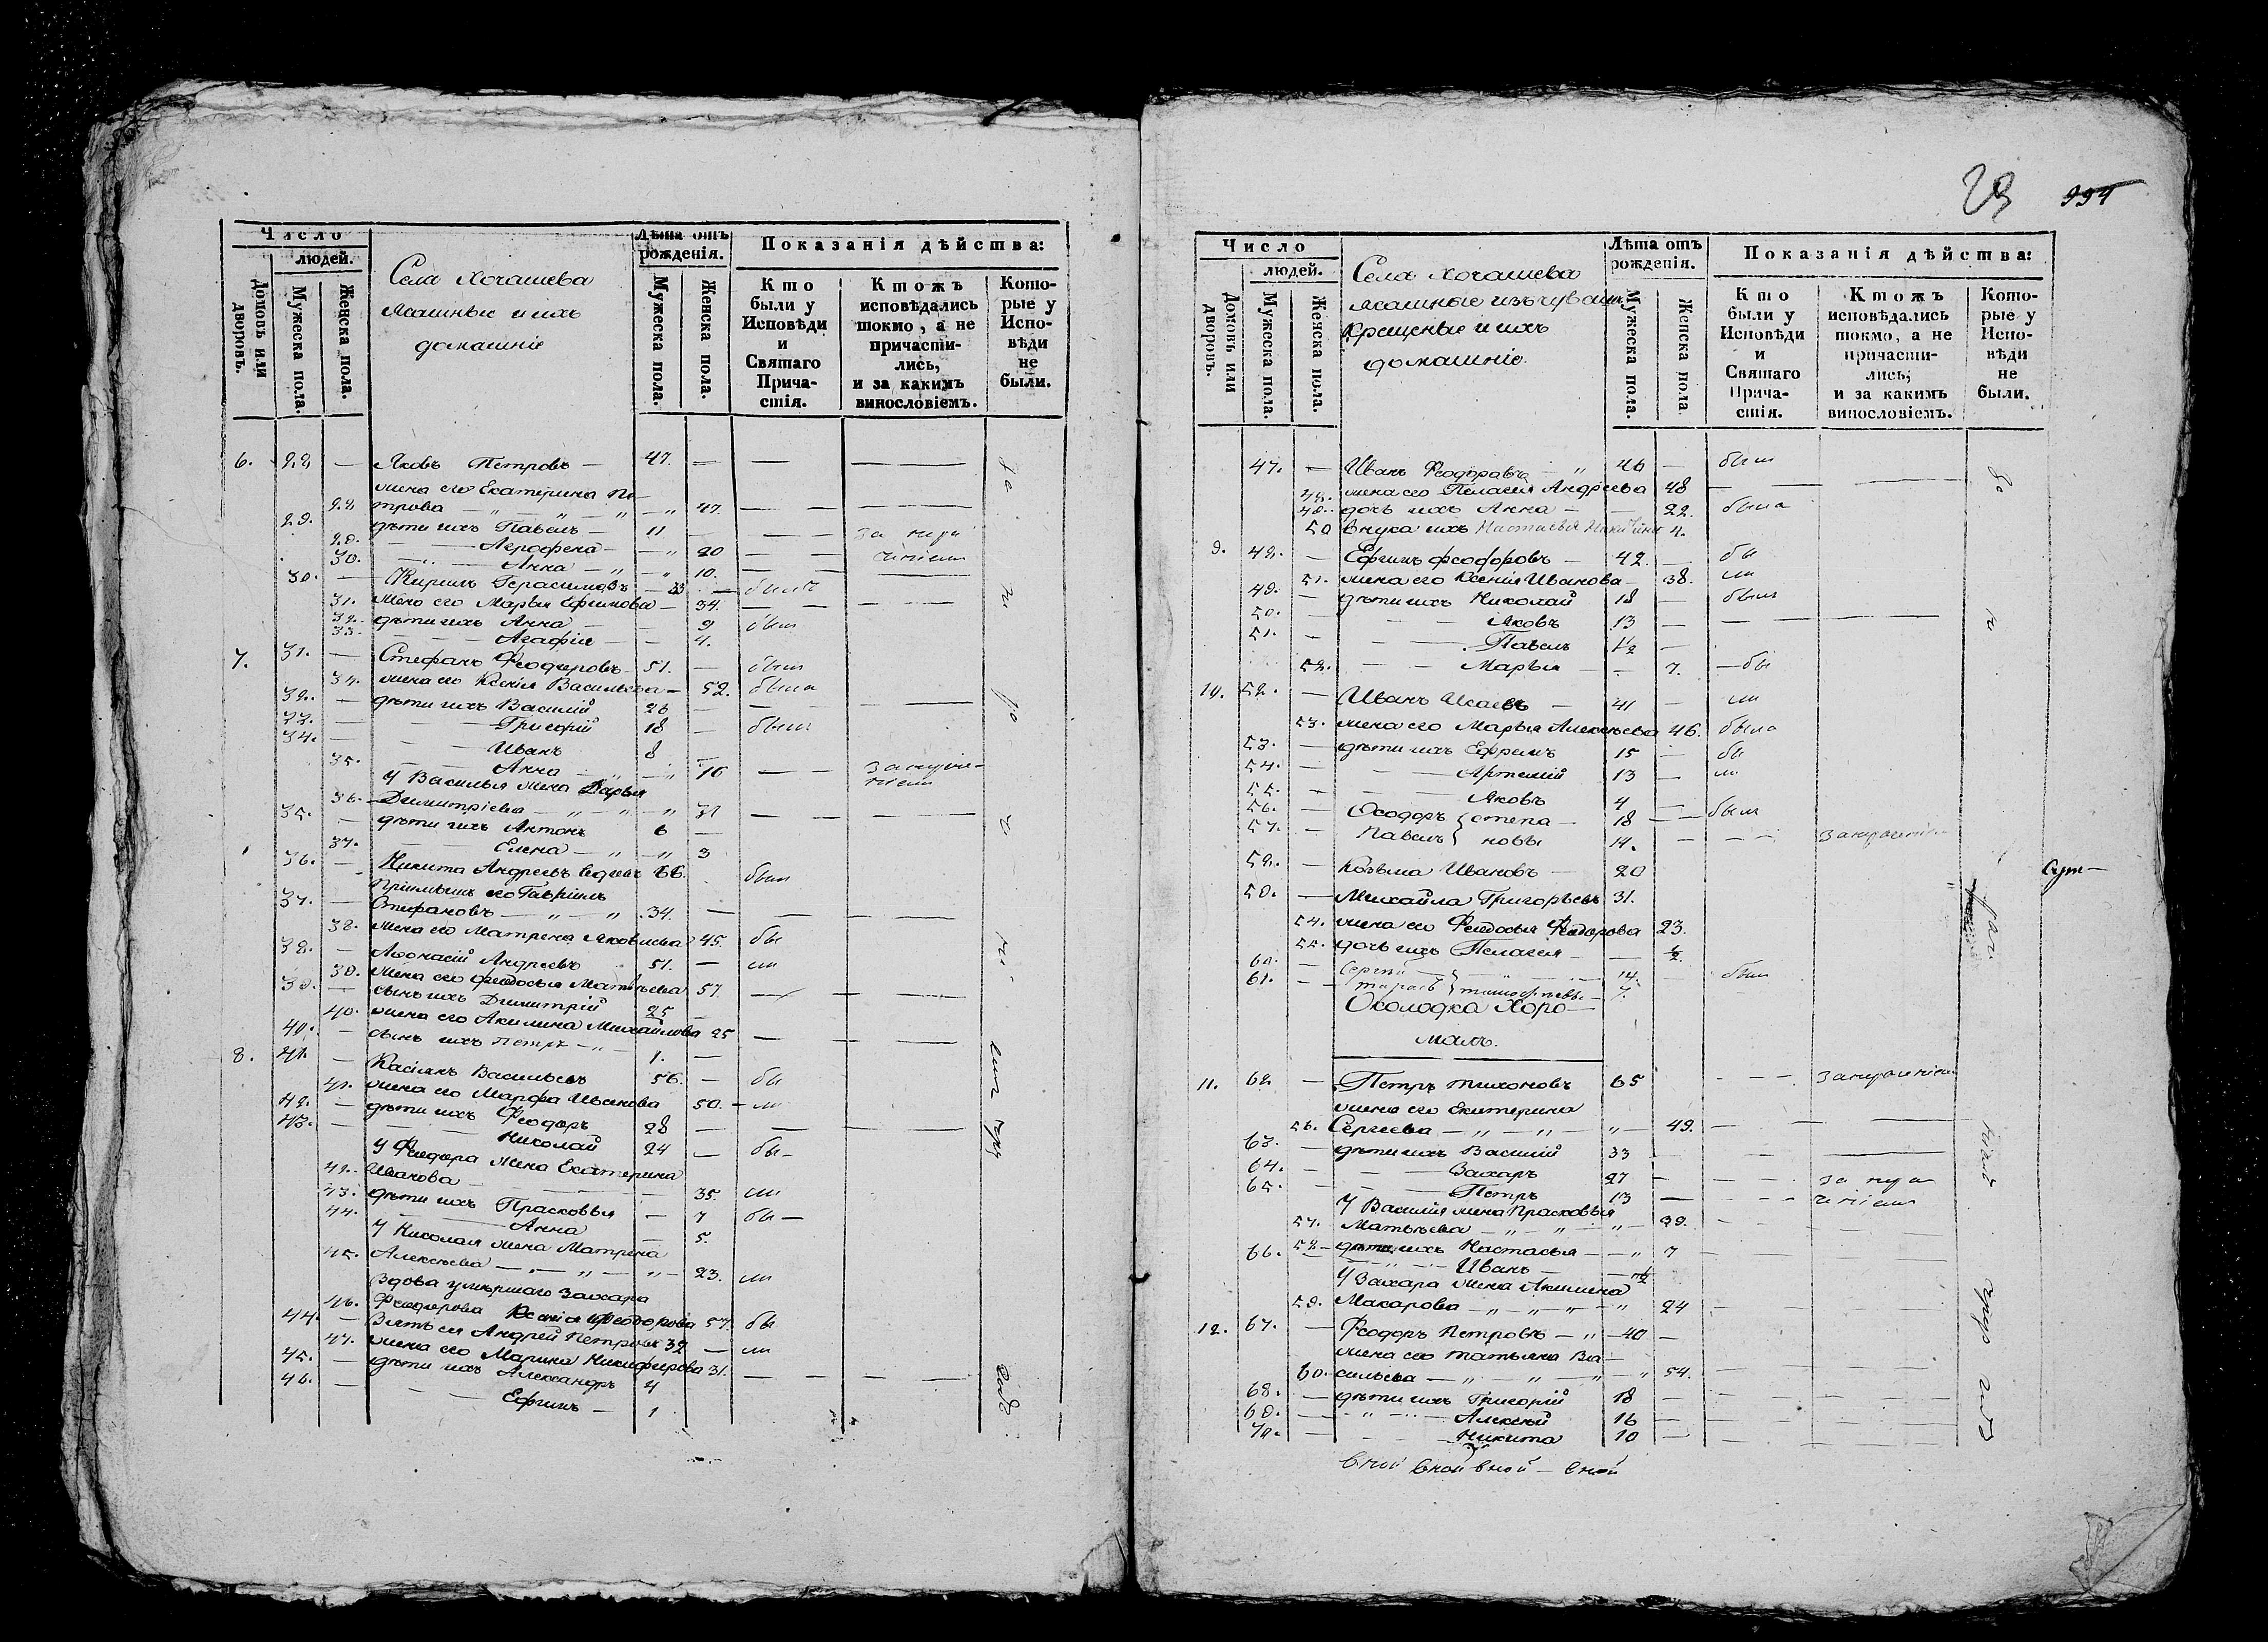 Число
людей.
Домовъ или дворовъ.
Мужеска пола.
Женска пола.
Села Хочашева
ясашные и ихъ
домашніе
Лѣта отъ рожденія.
Мужеска пола.
Женска пола.
Показанія дѣйства:
Кто были у Исповѣди и Святаго Причастія.
Ктожъ исповѣдались токмо, а не причастились, и за какимъ винословіемъ.
Которые у Исповѣди не были.
6. 28 — Яковъ Петровъ — 47. —
жена его Екатерина Пе-
28 трова — 47.
29. дѣти ихъ Павелъ — 11
29. Агрофена — 20
30. Анна — 10.
30. — Кирилъ Герасимовъ — 33
31. жена его Марья Ефимова — 34.
32. дѣти ихъ Анна — 9
33. Агафія — 4.
7. 31. — Стефанъ Феодоровъ 51. — былъ
34. жена его Ксенія Васильева — 52. была
32. — дѣти ихъ Василій 26
33. — Григорій 18 — былъ
34. — Иванъ 8
35. Анна — 16
У Василья жена Дарья
36. Димитріева — 31
35. — дѣти ихъ Антонъ 6 —
37. Елена — 3
36. — Никита Андреевъ вдовъ 66. былъ
Пріимышъ его Гавріилъ
37. — Стефановъ — 34. —
38. жена его Матрена Яковлева 45. бы
38. — Афонасій Андреевъ 51. — ли
39. жена его Феодосья Матвѣева 57.
39. — сынъ ихъ Димитрій 25 —
40. жена его Акилина Михайлова 25
40. — сынъ ихъ Петръ — 1. —
8. 41. — Касіянъ Васильевъ 56. — бы
41. жена его Марфа Иванова 50. — ли
42. — дѣти ихъ Феодоръ 28 —
43. — Николай 24 — бы-
У Феодора жена Екатерина
42. Иванова — 35. ли
43. дѣти ихъ Прасковья — 7 бы —
44. Анна — 5.
У Николая жена Матрена
45. Алексѣева — 23. ли
Вдова умершаго Захара
46. Феодорова Ксенія Феодорова 57. бы
44. — Зять ея Андрей Петровъ 32 — ли
47. жена его Марина Никифорова 31.
45. — дѣти ихъ Александръ 4
46. — Ефимъ — 1
29 994
Число
людей.
Домовъ или дворовъ.
Мужеска пола.
Женска пола.
Села Хочашева
ясашные изъ чувашъ
крещеные и ихъ
домашніе.
Лѣта отъ рожденія.
Мужеска пола.
Женска пола
Показанія дѣйства:
Кто были у Исповѣди и Святаго Причастія.
Ктожъ исповѣдались токмо, а не причастились; и за какимъ винословіемъ.
Которые у Исповѣди не были.
47. — Иванъ Феодоровъ — 46 — былъ
48. жена его Пелагея Андреева 48
49. дочь ихъ Анна — 22. была
50 внука ихъ Настасья 4.
9. 48. — Ефимъ Феодоровъ — 42. — бы
51. жена его Ксенія Иванова — 38. ли
49. — дѣти ихъ Николай 18 — былъ
50. — Яковъ 13 —
51. — Павелъ 1½ —
52. Марья — 7. — бы
10. 52. — Иванъ Исаевъ — 41 — ли
53. жена его Марья Алексѣева 46. была
53. — дѣти ихъ Ефремъ 15 — бы
54. — Артемій 13 — ли
55. — Яковъ 4 —
56. — Феодоръ } степа — 18 — былъ
57. — Павелъ } новы 14.
58. — Козьма Ивановъ — 20
59. — Михайла Григорьевъ 31.
54. жена его Феодосья Феодорова 23.
55. дочь ихъ Пелагея — ½
60. — Сергѣй 14. — былъ
61. — Тарасъ } тимофѣевы — 7.
Околодка Хоро-
малъ.
11. 62 — Петръ Тихоновъ 65
жена его Екатерина
56. Сергеева — 49.
63. — дѣти ихъ Василій 33
64. — Захаръ 27
65. — Петръ 13
У Василія жена Прасковья
57. Матвѣева — 39.
58 — дѣти ихъ Настасья — 7
66. Иванъ — ½
У Захара жена Акилина
59. Макарова — 24
12. 67. — Феодоръ Петровъ — 40 —
жена его Татьяна Ва-
60. сильева — 54.
68. — дѣти ихъ Григорій 18 —
69. — Алексѣй 16 —
70. — Никита 10 —